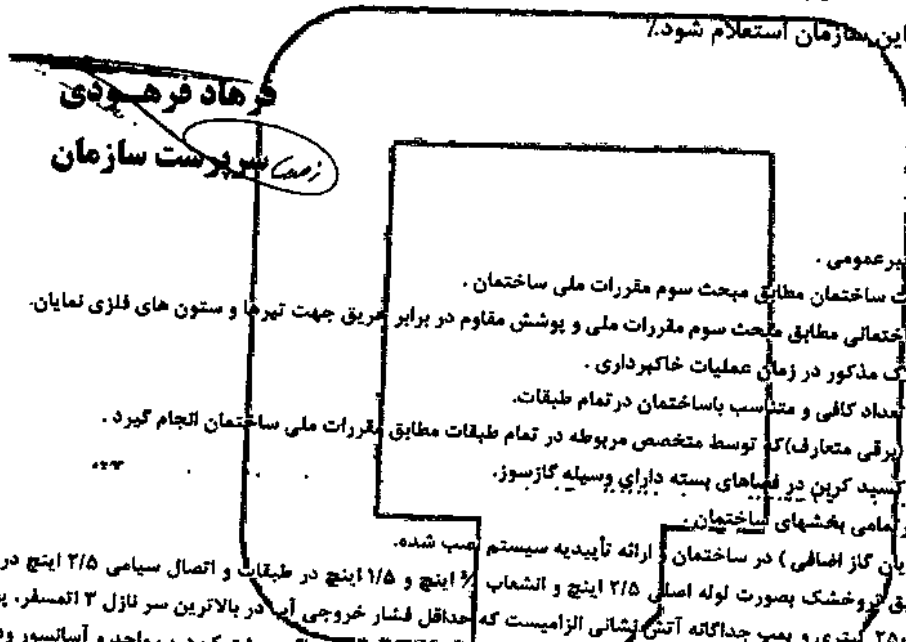 این سازمان استعلام شود./
فرهاد فرهودی
سرپرست سازمان
عمومی .
ساختمان مطابق مبحث سوم مقررات ملی ساختمان .
مطابق مبحث سوم مقررات ملی و پوشش مقاوم در برابر حریق جهت تیرها و ستون های فلزی نمایان.
مذکور در زمان عملیات خاکبرداری .
تعداد کافی و متناسب باساختمان درتمام طبقات.
(برقی متعارف)که توسط متخصص مربوطه در تمام طبقات مطابق مقررات ملی ساختمان انجام گیرد .
کربن در فضاهای بسته دارای وسیله گازسوز.
تمامی بخشهای ساختمان.
گاز اضافی ) در ساختمان و ارائه تأییدیه سیستم نصب شده.
بصورت لوله اصلی ۲/۵ اینچ و انشعاب اینچ و ۱/۵ اینچ در طبقات و اتصال سیامی ۲/۵ اینچ در
لیتری و پمپ جداگانه آتش نشانی الزامیست که حداقل فشار خروجی آب در بالاترین سر نازل ۳ اتمسفر.